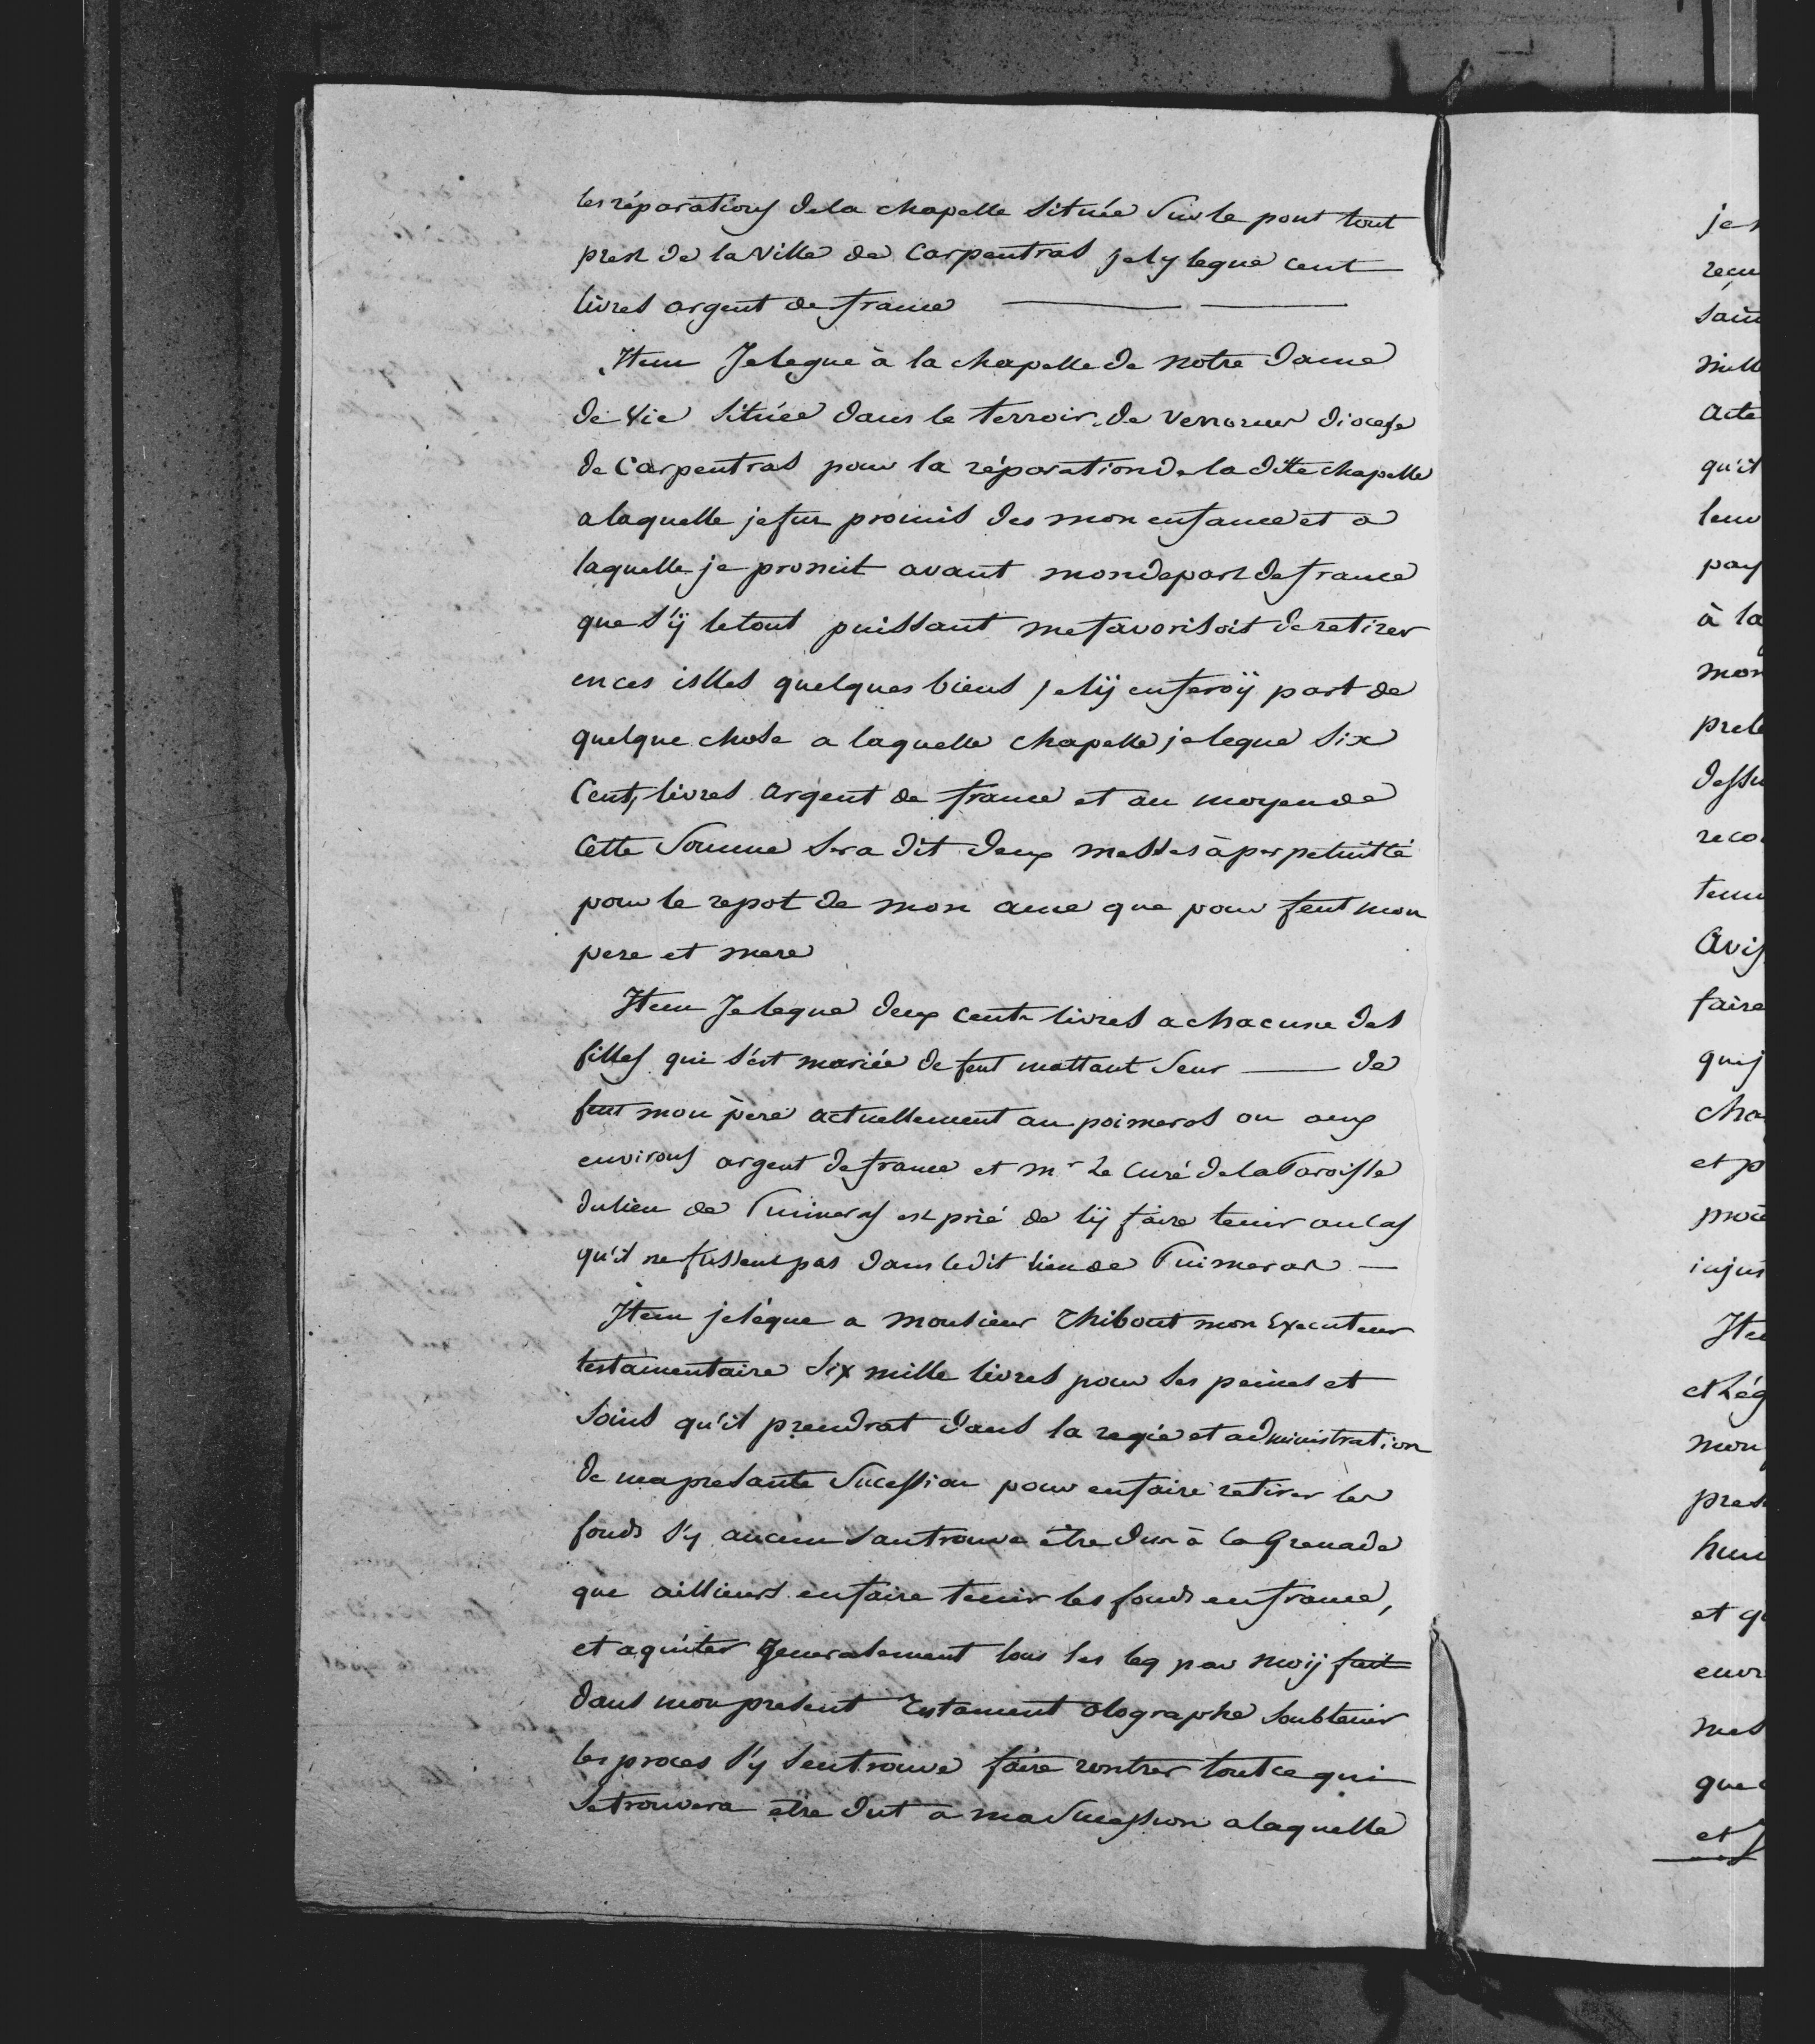 les réparations dela chapelle située Sur le pont tout
prest de la Ville de Carpentras je ly legue cent
livres argent de france
Item Je legue à la chapelle de notre dame
de Vie située dans le terroir de diocese
de Carpentras pour la réparation de la dite chapelle
a laquelle je fus promis des mon enfance et a
laquelle je promit avant mon depart de france
que s'ÿ le tout puissant me favorisoit de retirer
en ces isles quelques biens je lÿ en feroÿ part de
quelque chose a laquelle chapelle je legue Six
Cent livres argent de france et au moyen de
Cette Somme Sera dit deux messes à perpetuitté
pour le repot de mon ame que pour feut mon
pere et mere
Item Je legue deux cents livres a chacune des
filles qui s'est mariée de feut mattant Seur de
feut mon père actuellement au poimeras ou aux
environs argent de france et mr Le Curé de la Paroisse
du lieu de Puimeras est prié de lÿ faire tenir au Cas
qu'il ne fussent pas dans ledit lieu de Puimeras
Item je légue a monsieur Thibout mon Executeur
testamentaire Six mille livres pour Ses peines et
Soins qu'il prendrat dans la regie et administration
de ma presante Sucession pour en faire retirer les
fonds s'y aucun San trouve être dus à la Grenade
que aillieurs en faire tenir les fonds en france,
et aquiter generalement tous les leg par moÿ fait
dans mon present Testament olographe Soubtenir
les proces s'y Sen trouve faire rentrer tout ce qui
Se trouvera être dut a ma Sucession a laquelle
je
recu
sain
mille
acte
qu'il
leur
pay
à la
mon
dessu
reco
tenu
avis
faire
quej
cha
et p
injus
Ite
et Lég
mon
pres
et q
envi
mes
que
et